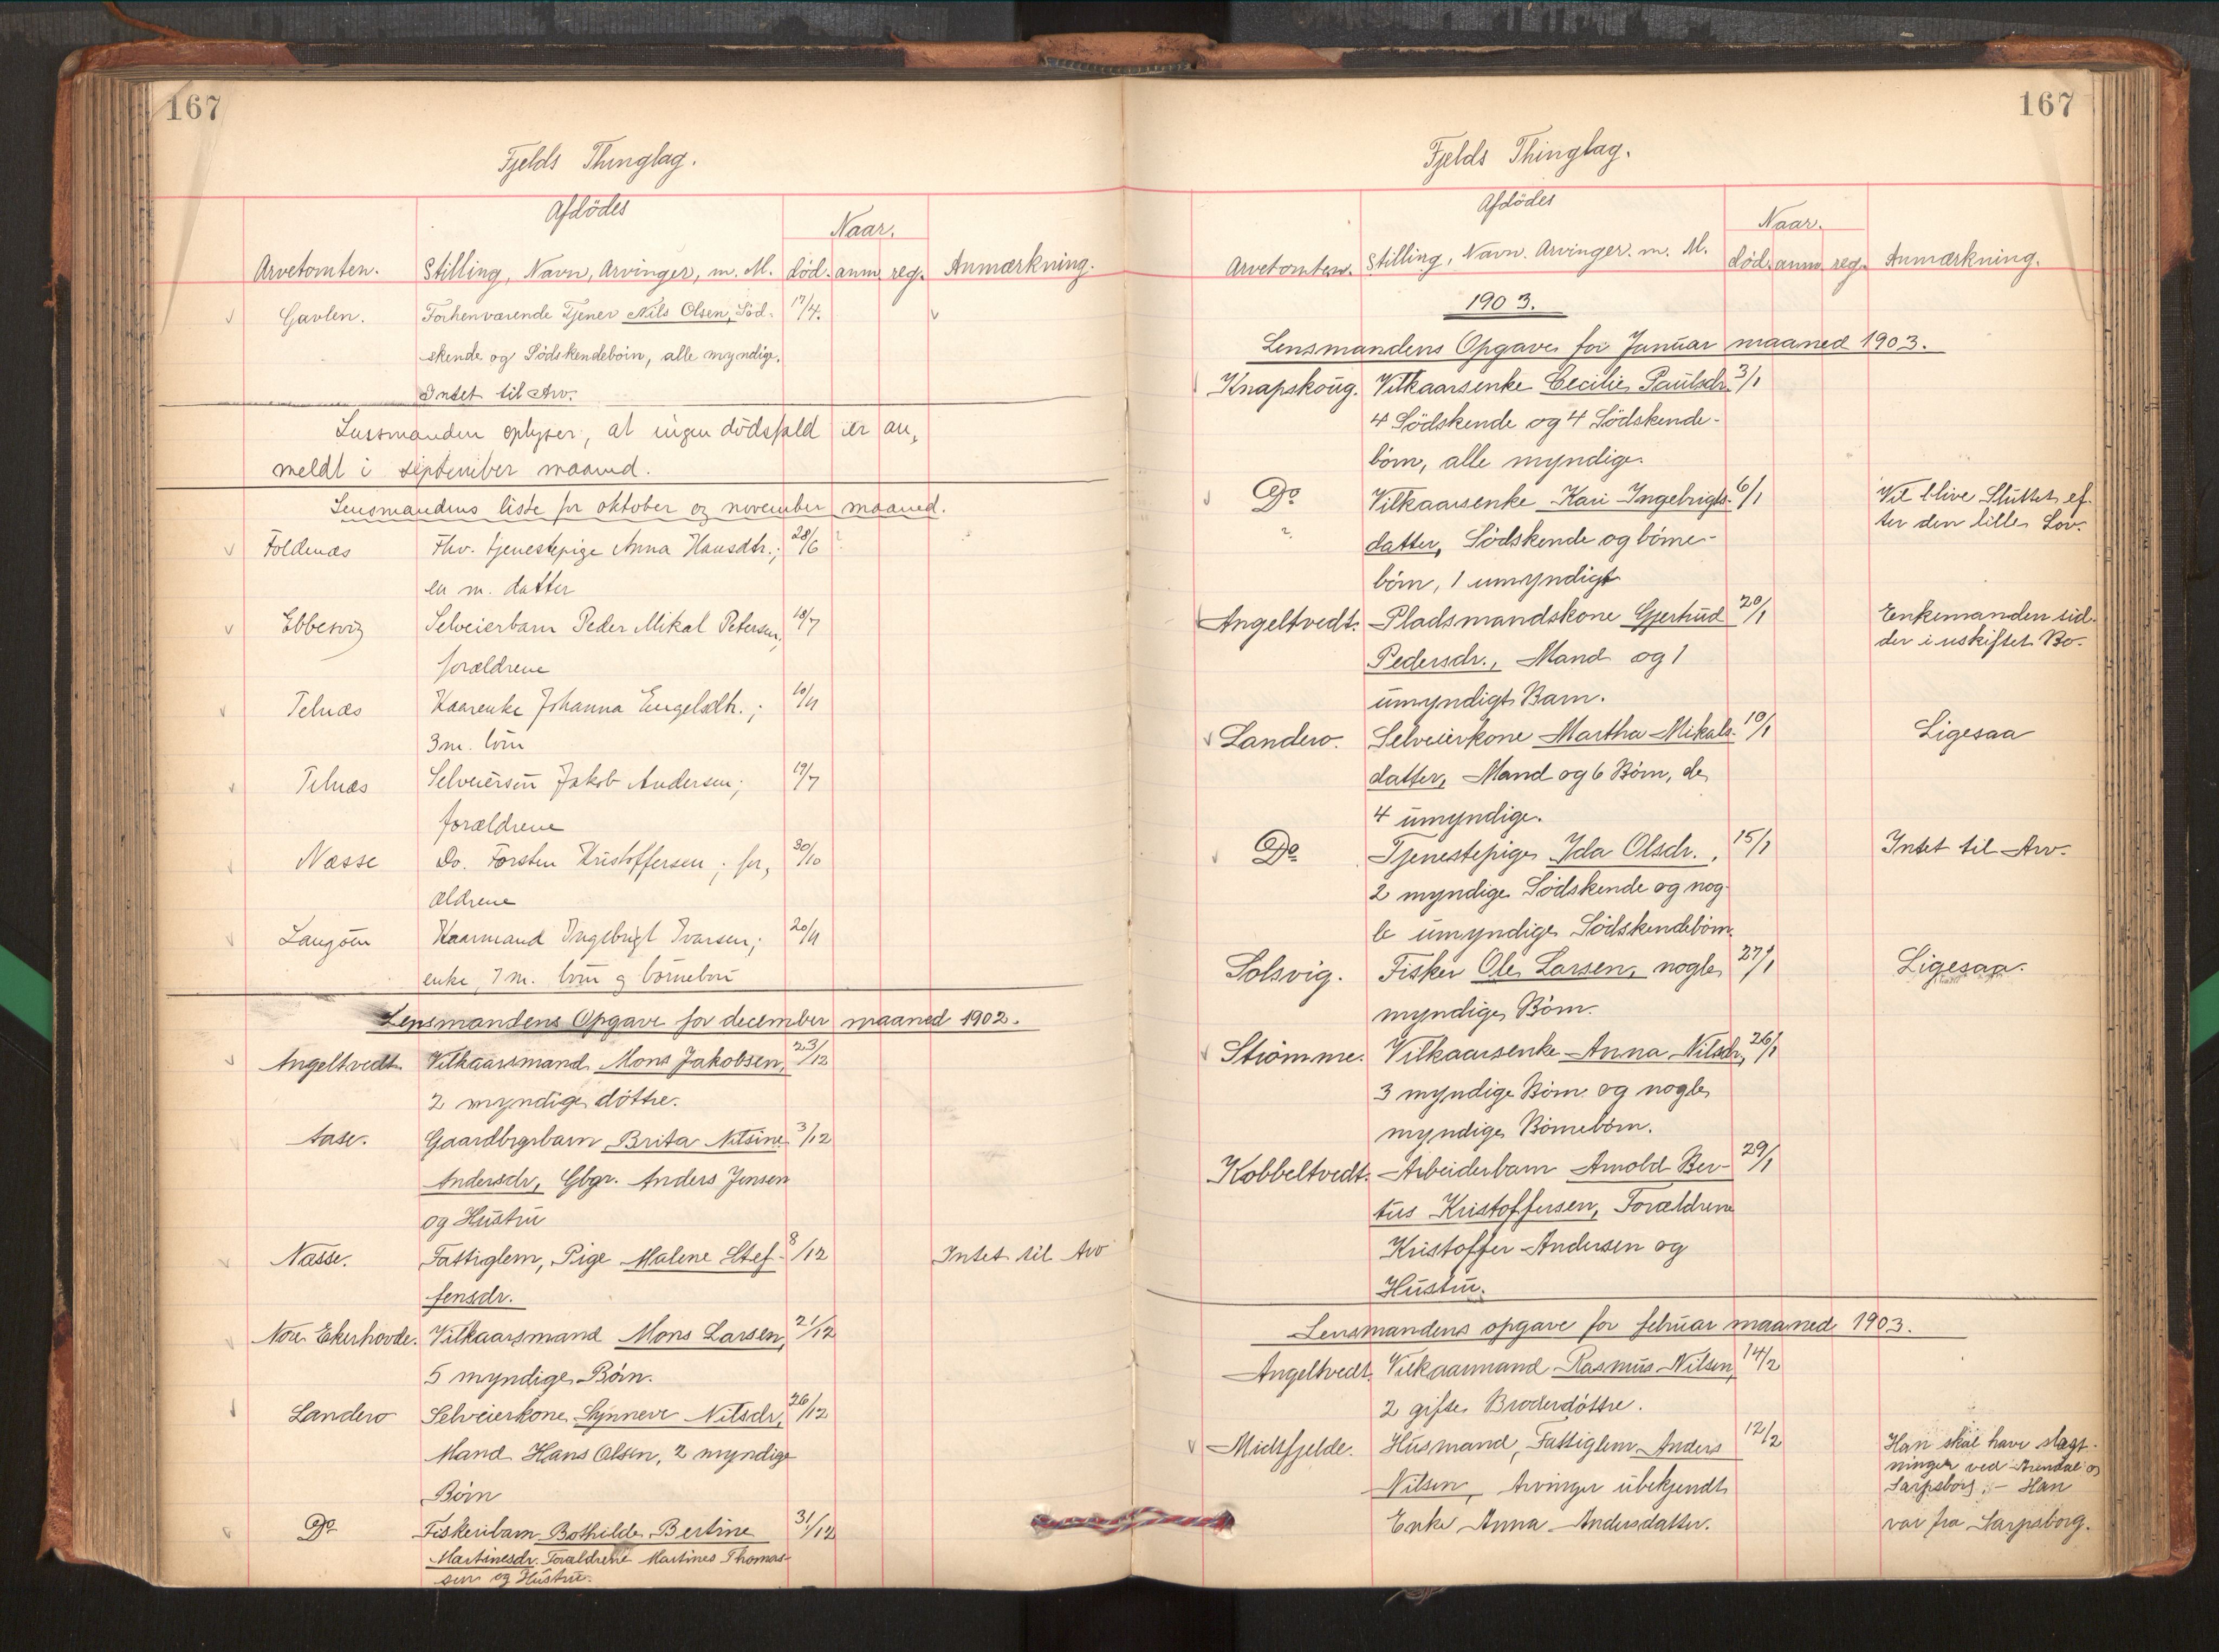 167
Fjelds Thinglag.
Afdödes
Naar.
Arvetomten. Stilling, Navn, Arvinger, m. M. död. anm. reg. Anmærkning.
Gavlen. Forhenværende Tjener Nils Olsen, Söd- 17/4.
skende og Södskendebörn, alle myndige.
Intet til Arv.
Lensmanden oplyser, at ingen dödsfald er an,
meldt i september maaned.
Lensmandens liste for oktober og november maaned.
Foldnæs Fhv. tjenestepige Anna Hansdtr.; 28/6 ?
en m. datter
Ebbesvig Selveierbarn Peder Mikal Petersen, 18/7
forældrene
Telnæs Kaarenke Johanna Engelsdtr.; 10/11
3 m. börn
Telnæs Selveiersön Jakob Andersen; 19/7
forældrene
Næsse Do. Torsten Kristoffersen; for, 30/10
ældrene
Langöen Kaarmand Ingebrigt Ivarsen; 20/11
enke, 7 m. börn og börnebörn
Lensmandens Opgave for december maaned 1902.
Angeltvedt. Vilkaarsmand Mons Jakobsen, 23/12
2 myndige döttre.
Aase. Gaardbrgrbarn Brita Nilsine 3/12
Andersdr, Gbgr. Anders Jensen
og Hustru
Næsse. Fattiglem, Pige Malene Stef- 8/12 Intet til Arv
fensdr.
Nore Ekerhovde. Vilkaarsmand Mons Larsen, 21/12
5 myndige Börn.
Landero Selveierkone Synneve Nilsdr, 26/12
Mand Hans Olsen, 2 myndige
Börn
Do Fiskeribarn Bothilde Bertine 31/12
Martinesdr. Forældrene Martines Thomas-
sen og Hustru.
167
Fjelds Thinglag.
Afdödes
Naar.
Arvetomten. Stilling, Navn. Arvinger. m. M. död. anm. reg. Anmærkning.
1903.
Lensmandens Opgave for Januar maaned 1903.
Knapskoug. Vilkaarsenke Cecilie Paulsdr. 3/1
4 Södskende og 4 Södskende-
börn, alle myndige.
Do Vilkaarsenke Kari Ingebrigts- 6/1 Vil blive Sluttet ef-
datter, Södskende og börne- ter den lille Lov.
börn, 1 umyndigt.
Angeltvedt. Pladsmandskone Gjertrud 20/1 Enkemanden sid-
Pedersdr., Mand og 1 der i uskiftet Bo.
umyndigt Barn.
Landero. Selveierkone Martha Mikals- 10/1 Ligesaa
datter, Mand og 6 Börn, de
4 umyndige.
Do Tjenestepige Ida Olsdr., 15/1 Intet til Arv.
2 myndige Södskende og nog-
le umyndige Södskendebörn.
Solsvig. Fisker Ole Larsen, nogle 27/1 Ligesaa.
myndige Börn.
Strömme. Vilkaarsenke Anna Nilsdr, 26/1
3 myndige Börn og nogle
myndige Börnebörn.
Kobbeltvedt. Arbeiderbarn Arnold Ber- 29/1
tus Kristoffersen, Forældrene
Kristoffer Andersen og
Hustru.
Lensmandens opgave for februar maaned 1903.
Angeltvedt. Vilkaarmand Rasmus Nilsen, 14/2
2 gifte Broderdöttre.
Midtfjelde. Husmand, Fattiglem Anders 12/2 Han skal have slægt-
Nilsen, Arvinger ubekjendt ninger ved Arendal og
Sarpsborg. - Han
Enke Anna Andersdatter. var fra Sarpsborg.